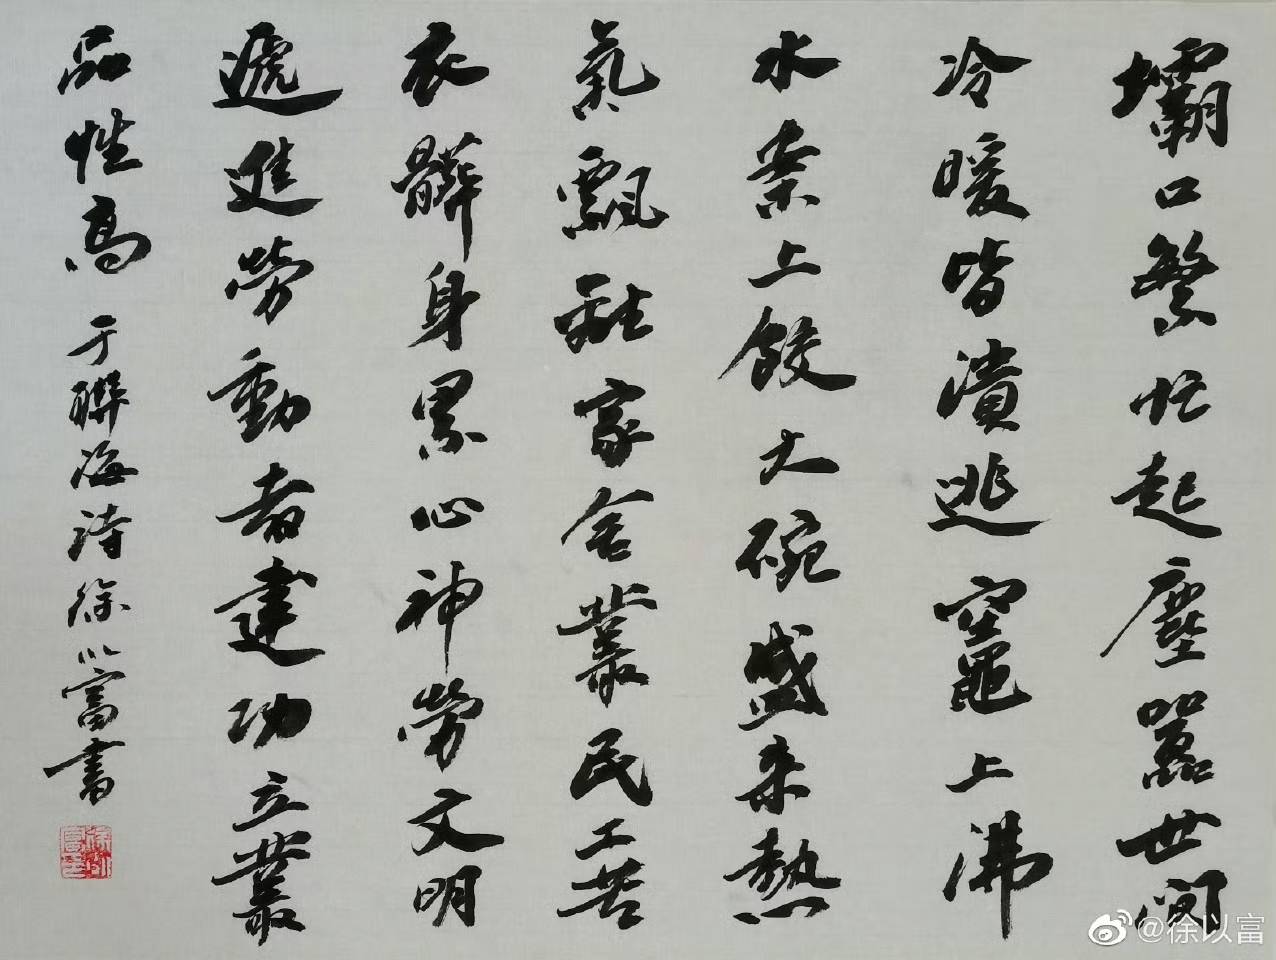 壩口繁忙起塵囂世間
冷暖皆潰逃空竈上沸
水案上餃大碗盛來熱
氣飄融家舍叢民工苦
衣髒身累心神勞文明
遞進勞動者建功立叢
品性高
于聯海诗徐以富書
@徐以富